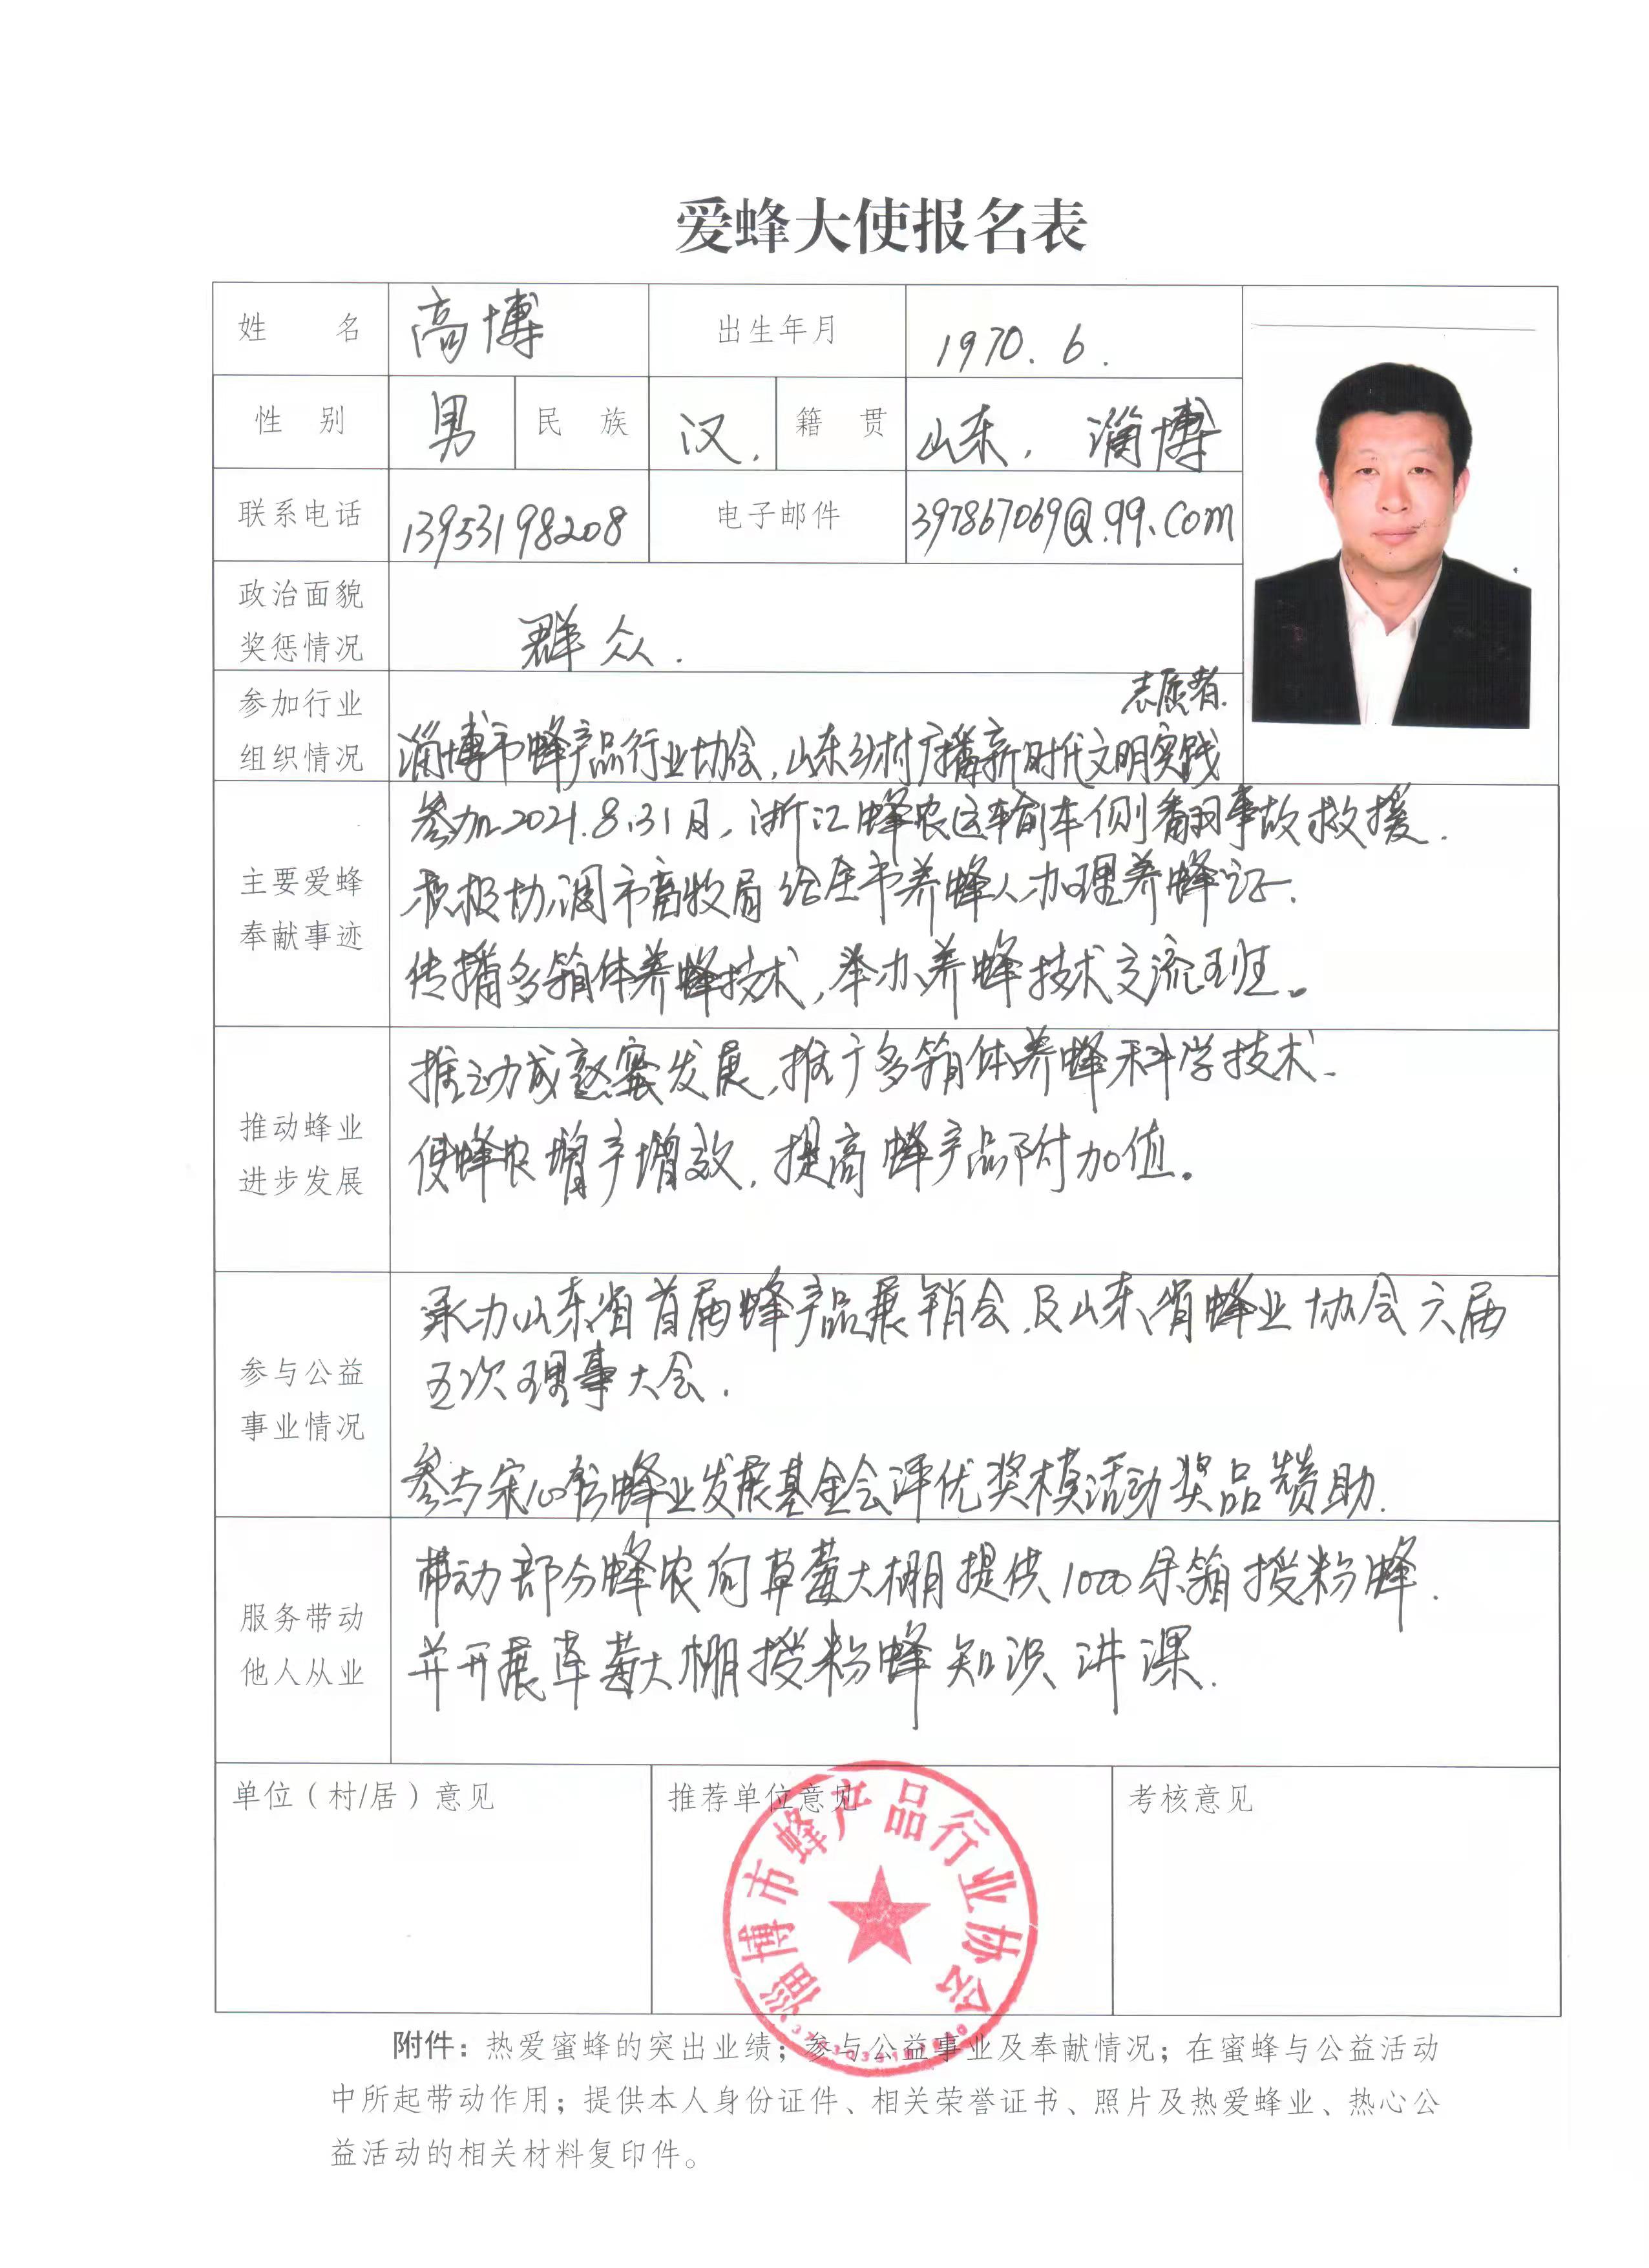 爱蜂大使报名表
姓 名 高博 出生年月 1970.6.
性 别 男 民 族 汉. 籍 贯 山东. 淄博
联系电话 13953198208 电子邮件 397867069@.qq.com
政治面貌
奖惩情况
群众.
参加行业
组织情况
志愿者.
淄博市蜂产品行业协会,山东乡村广播新时代文明实践
主要爱蜂
奉献事迹
参加2021.8.31日,浙江蜂农运输车侧翻事故救援.
积极协调市畜牧局给全市养蜂人办理养蜂证.
传播多箱体养蜂技术,举办养蜂技术交流班。
推动蜂业
进步发展
推动成熟蜜发展,推广多箱体养蜂科学技术
使蜂农增产增效,提高蜂产品附加值。
参与公益
事业情况
承办山东省首届蜂产品展销会,及山东省蜂业协会六届
五次理事大会.
参与宋心仿蜂业发展基金会评优奖模活动奖品赞助.
服务带动
他人从业
带动部分蜂农向草莓大棚提供1000余箱授粉蜂.
并开展草莓大棚授粉蜂知识讲课.
单位（村/居）意见 推荐单位意见 考核意见
淄博市蜂产品行业协会
附件：热爱蜜蜂的突出业绩；参与公益事业及奉献情况；在蜜蜂与公益活动
中所起带动作用；提供本人身份证件、相关荣誉证书、照片及热爱蜂业、热心公
益活动的相关材料复印件。